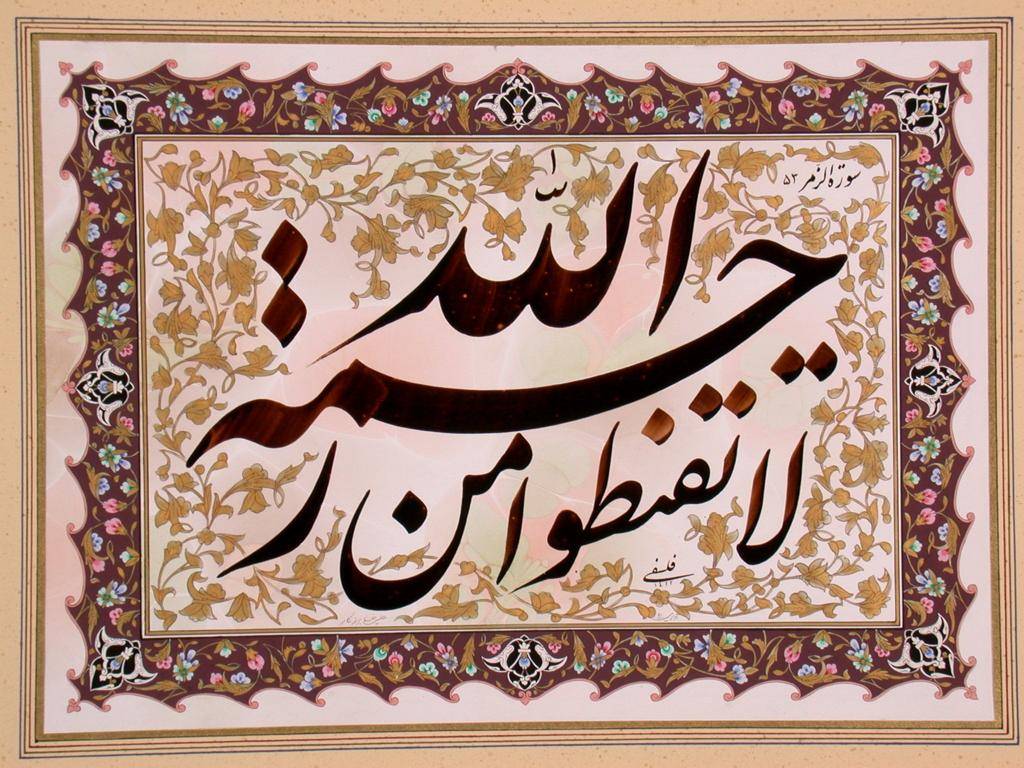 سورة الزمر ۵۳
لا تقنطوا من ر
حمة
الله
فلسفی